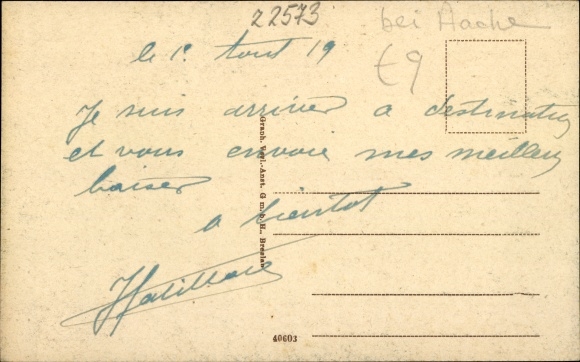 22573
bei Aachen
€9
le 1e Aout 19
Je suis arriver a destination
et vous envoie mes meilleurs
baiser
a bientot
Graph. Verl.-Anst. G. m. b. H., Breslau
40603